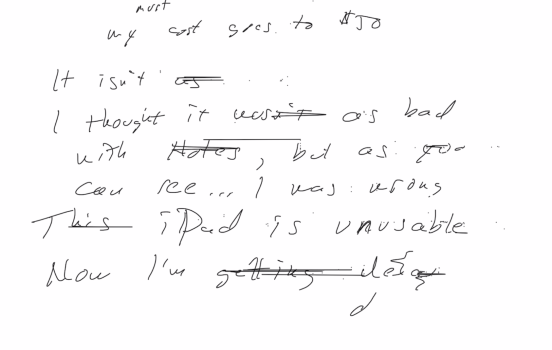 must
my cost goes to $50
It isn't as
I thought it wasn't as bad
with Notes, but as you
can see... I was wrong
This iPad is unusable
Now I'm getting
d